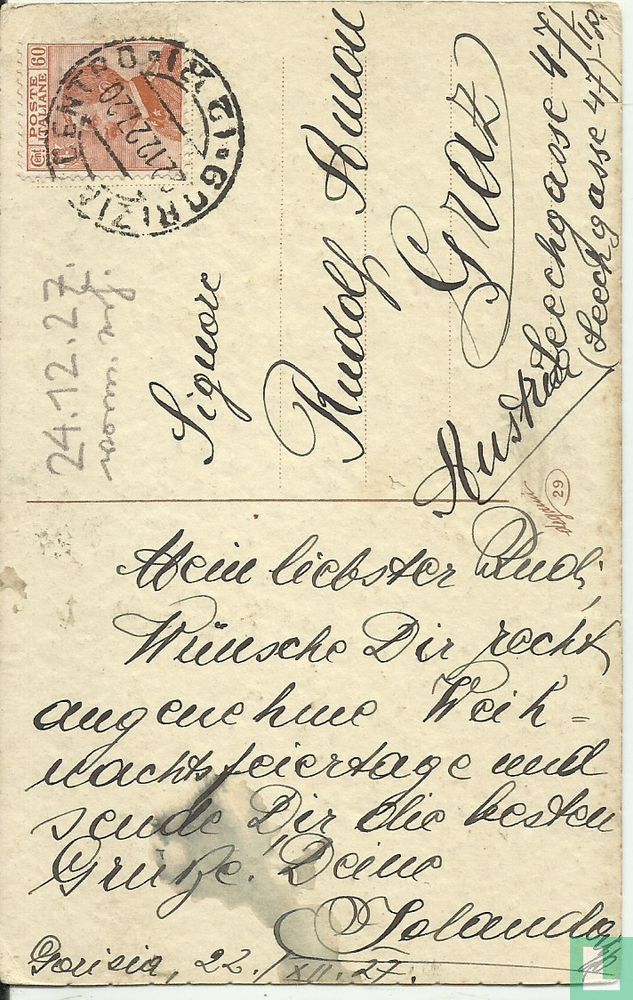 60
Cent
POSTE
ITALIANE
GORIZIA
CENTRO
24.12.27.
Signore
Rudolf
Graz
Austria
Leechgasse 47/I
(Leechgasse 47/
29
Mein liebster Rudi,
Wünsche Dir recht
angenehme Weih=
nachtsfeiertage und
sende Dir die besten
Grüße. Deine
Iolanda
Gorisia, 22./XII.27.